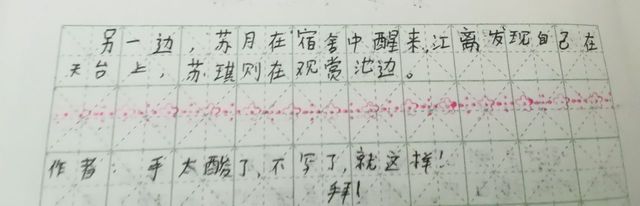 另一边，苏月在宿舍中醒来，江离发现自己在
天台上，苏琪则在观赏池边。
作者：手太酸了，不写了，就这样！
拜！